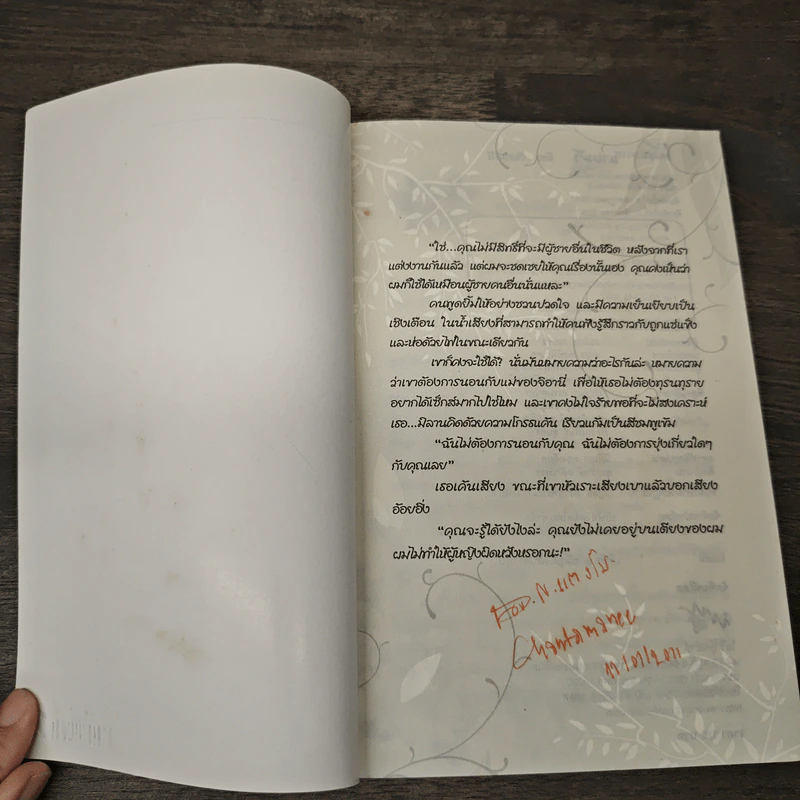 “ใช่...คุณไม่มีสิทธิ์ที่จะมีผู้ชายอื่นในชีวิต หลังจากที่เรา
แต่งงานกันแล้ว แต่ผมจะชดเชยให้คุณเรื่องนั้นเอง คุณคงเห็นว่า
ผมก็ใช้ได้เหมือนผู้ชายคนอื่นนั่นแหละ”
คนพูดยิ้มให้อย่างชวนปวดใจ และมีความเย็นเยียบเป็น
เชิงเตือน ในน้ำเสียงที่สามารถทำให้คนฟังรู้สึกราวกับถูกแช่แข็ง
และห่อด้วยไฟในขณะเดียวกัน
เขาก็คงจะใช้ได้? นั่นมันหมายความว่าอะไรกันล่ะ หมายความ
ว่าเขาต้องการนอนกับแม่ของจิอานี่ เพื่อให้เธอไม่ต้องทุรนทุราย
อยากได้เซ็กส์มากไปใช่ไหม และเขาคงไม่ใจร้ายพอที่จะไม่สงเคราะห์
เธอ...มิลานคิดด้วยความโกรธแค้น เรียวแก้มเป็นสีชมพูเข้ม
“ฉันไม่ต้องการนอนกับคุณ ฉันไม่ต้องการยุ่งเกี่ยวใดๆ
กับคุณเลย”
เธอเค้นเสียง ขณะที่เขาหัวเราะเสียงเบาแล้วบอกเสียง
อ้อยอิ่ง
“คุณจะรู้ได้ยังไงล่ะ คุณยังไม่เคยอยู่บนเตียงของผม
ผมไม่ทำให้ผู้หญิงผิดหวังหรอกนะ!”
For. N. แตงโม
Chantamanee